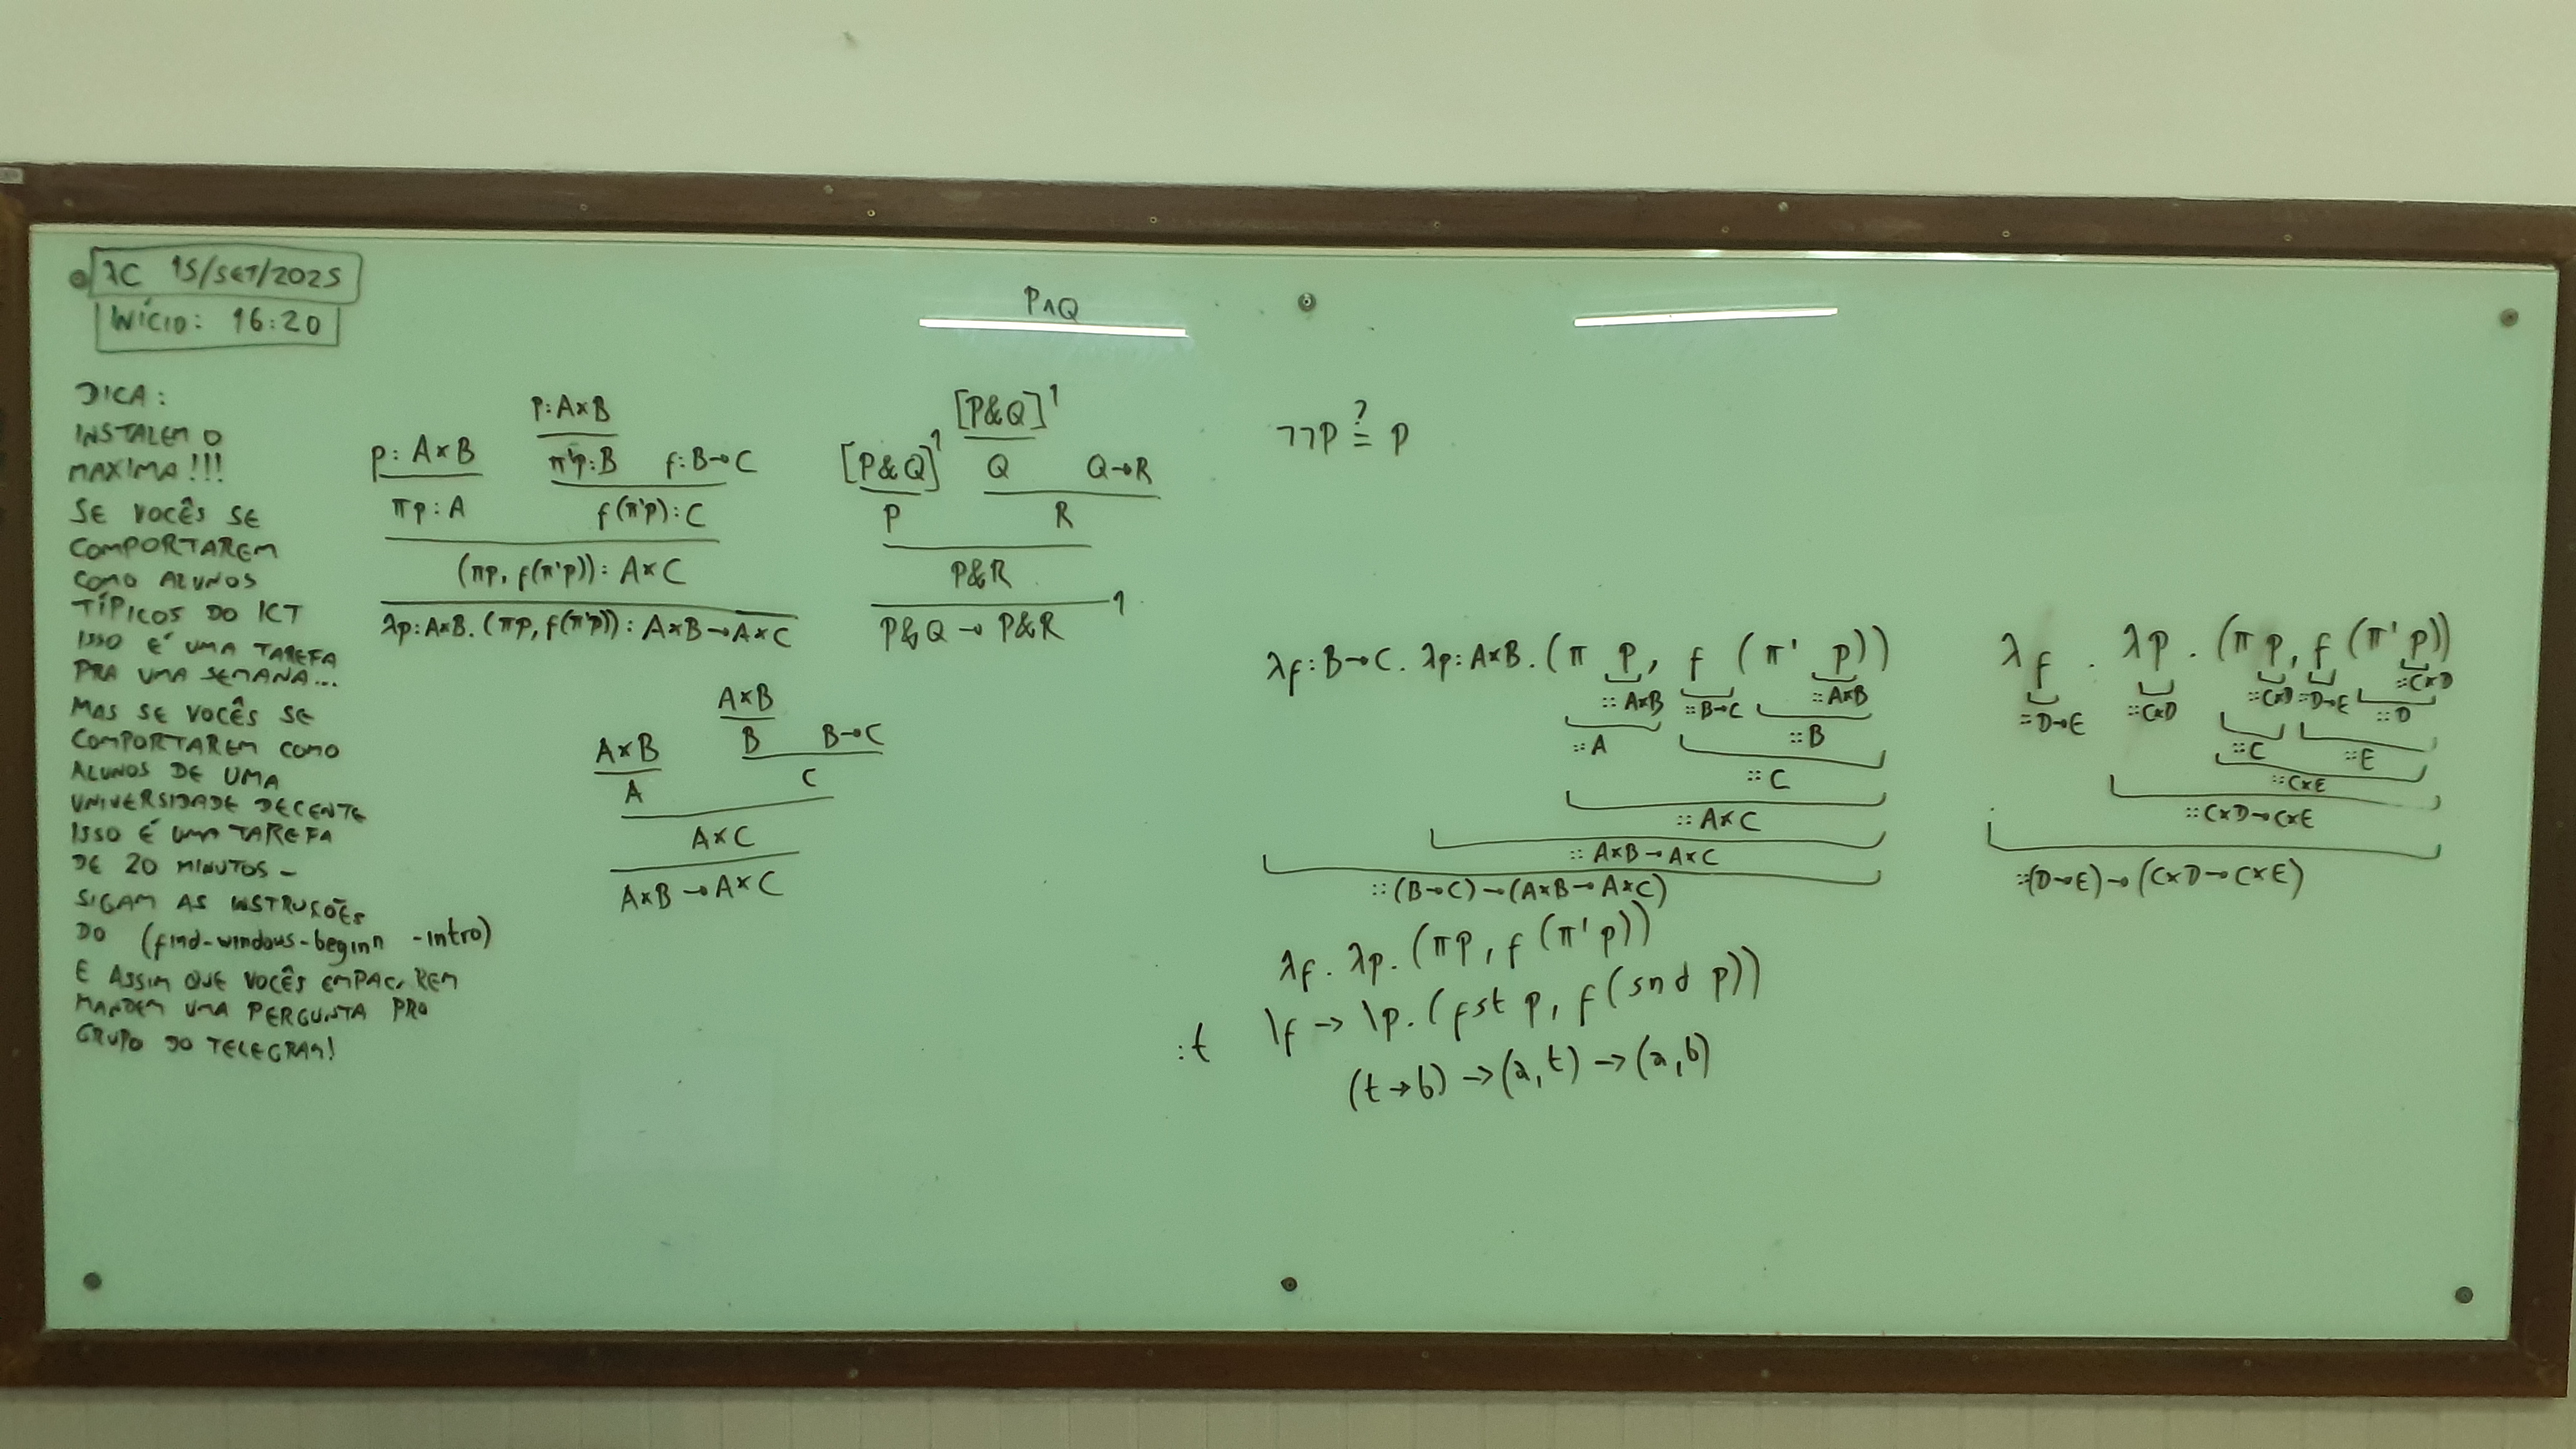 λC 15/SET/2025
INÍCIO: 16:20
DICA:
INSTALEM O
MAXIMA!!!
SE VOCÊS SE
COMPORTAREM
COMO ALUNOS
TÍPICOS DO ICT
ISSO É UMA TAREFA
PRA UMA SEMANA...
MAS SE VOCÊS SE
COMPORTAREM COMO
ALUNOS DE UMA
UNIVERSIDADE DECENTE
ISSO É UMA TAREFA
DE 20 MINUTOS –
SIGAM AS INSTRUÇÕES
DO (find-windows-beginn -intro)
E ASSIM QUE VOCÊS EMPACAREM
MANDEM UMA PERGUNTA PRO
GRUPO DO TELEGRAM!
p:A×B
p:A×B
π'p:B f:B→C
πp:A f(π'p):C
(πp, f(π'p)): A×C
λp:A×B.(πp, f(π'p)): A×B→A×C
A×B
A×B B B→C
A C
A×C
A×B→A×C
P∧Q
[P&Q]¹
[P&Q]¹ Q Q→R
P R
P&R
P&Q → P&R 1
¬¬P ?= P
λf:B→C. λp:A×B.(π p, f (π' p))
::A×B ::B→C ::A×B
::A ::B
::C
::A×C
::A×B→A×C
::(B→C)→(A×B→A×C)
λf. λp. (πp, f(π'p))
:t \f -> \p. (fst p, f(snd p))
(t→b) →(a,t) →(a,b)
λf. λp. (π p, f (π' p))
::D→E ::C×D ::C×D ::D→E ::C×D
::D
::C ::E
::C×E
::C×D→C×E
::(D→E)→(C×D→C×E)